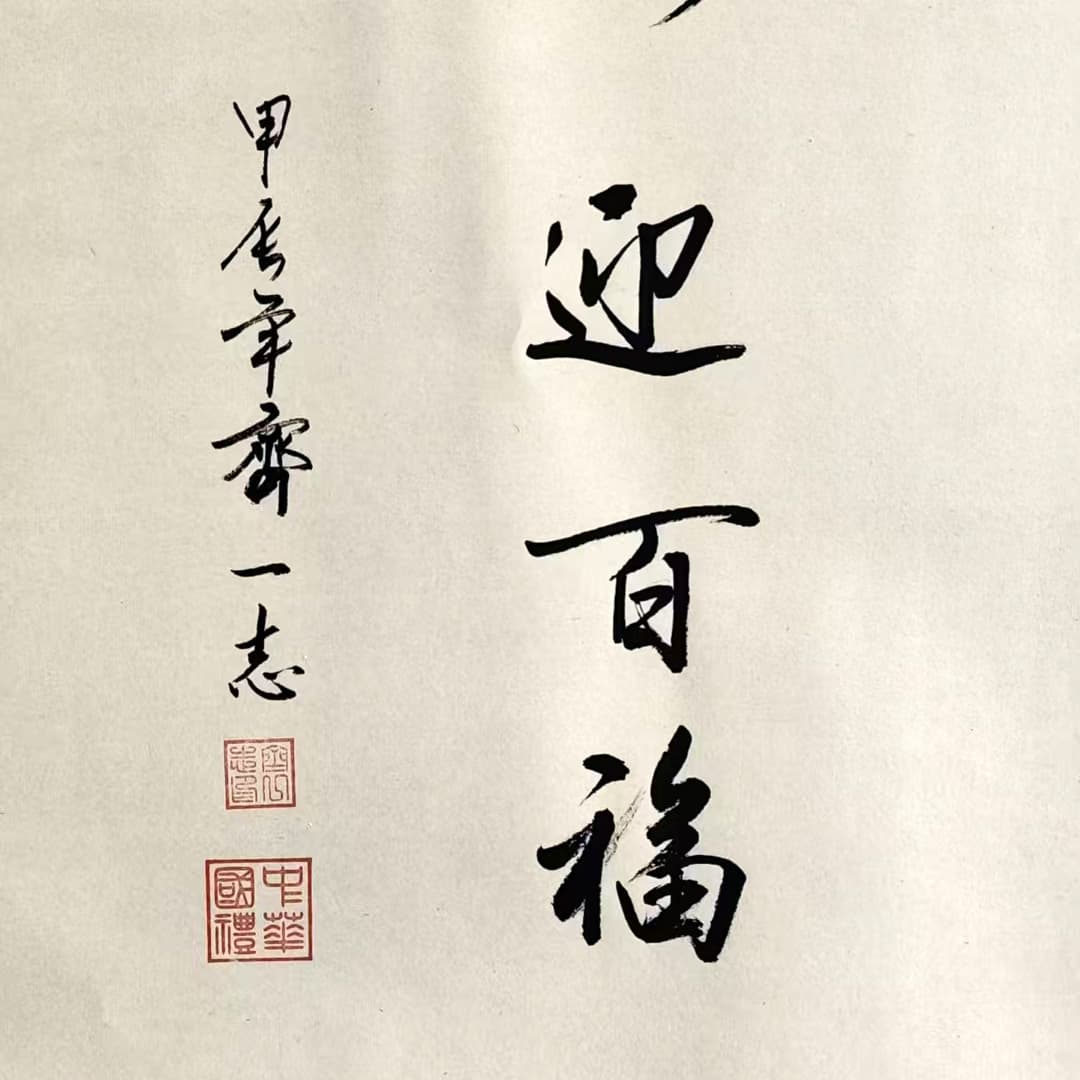 迎百福
甲辰年齊一志
中華國禮